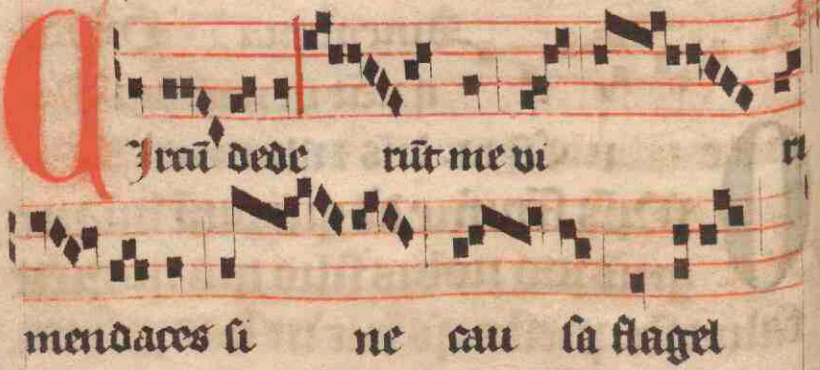 Circū dede rūt me vi ri
mendaces si ne cau sa flagel